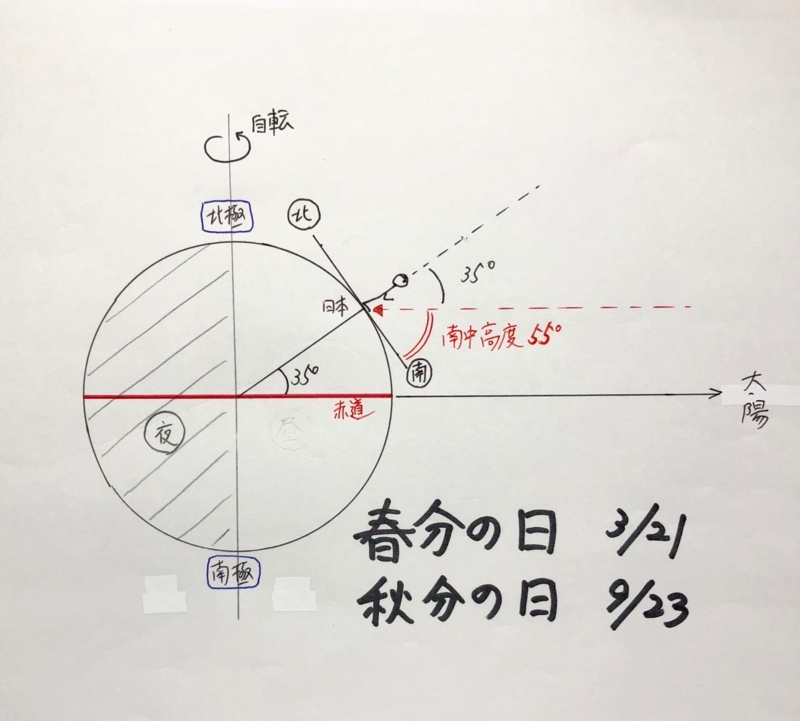 自転
北極
北
35°
日本
南中高度 55°
南
35°
太陽
赤道
夜
昼
春分の日 3/21
秋分の日 9/23
南極